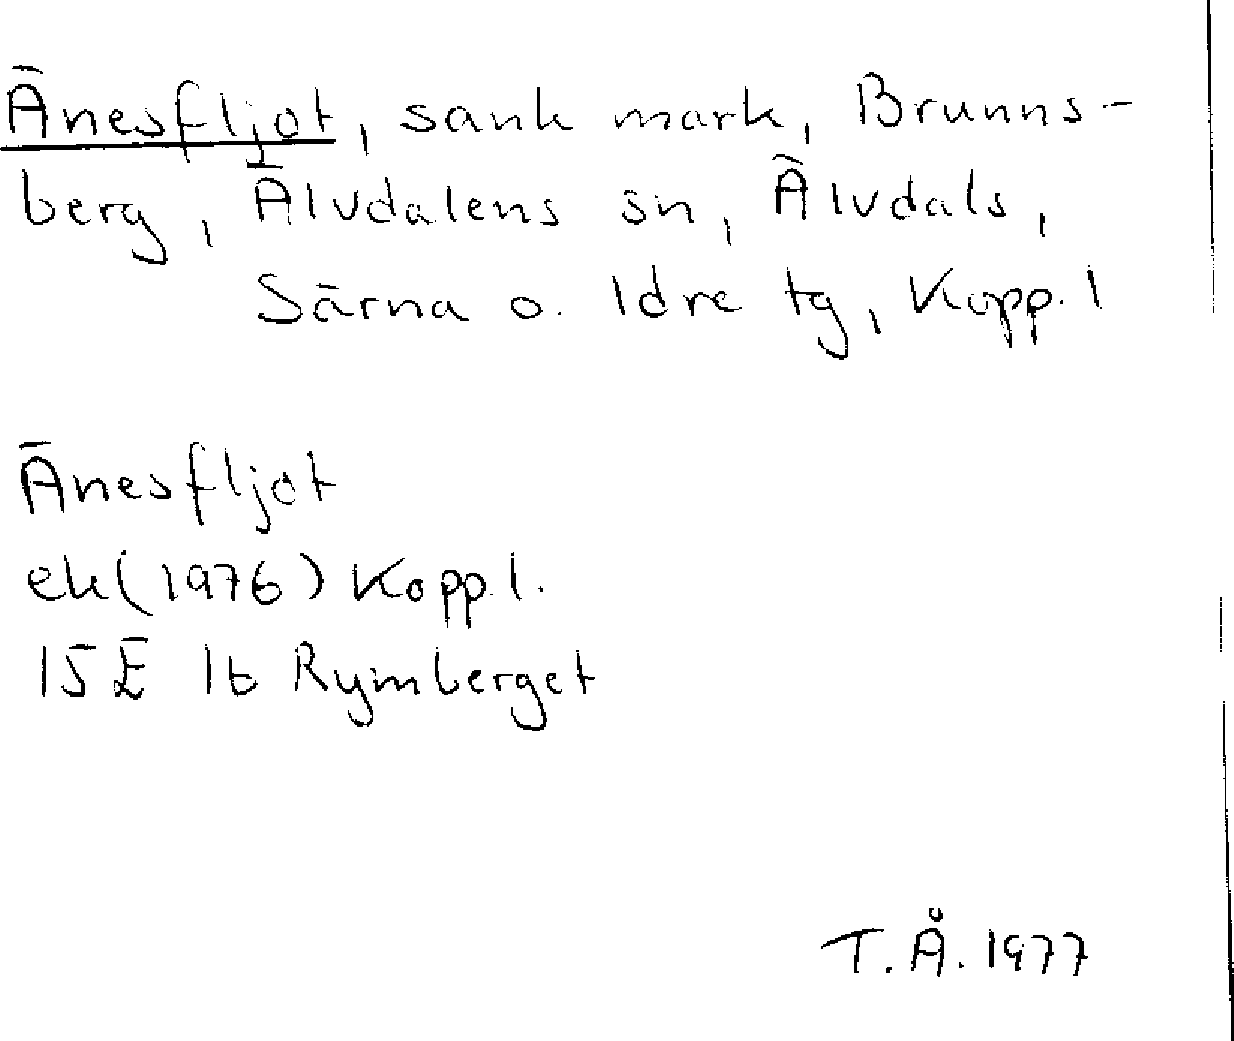 Änesfljot, sank mark, Brunns-
berg, Älvdalens sn, Älvdals,
Särna o. Idre tg, Kopp. l
Änesfljot
ek (1976) Kopp l.
15 E 1b Rymberget
T. Å. 1977